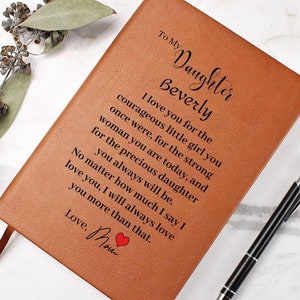 To My
Daughter
Beverly
I love you for the
courageous little girl you
once were, for the strong
woman you are today, and
for the precious daughter
you always will be.
No matter how much I say I
love you, I will always love
you more than that.
Love, Mom